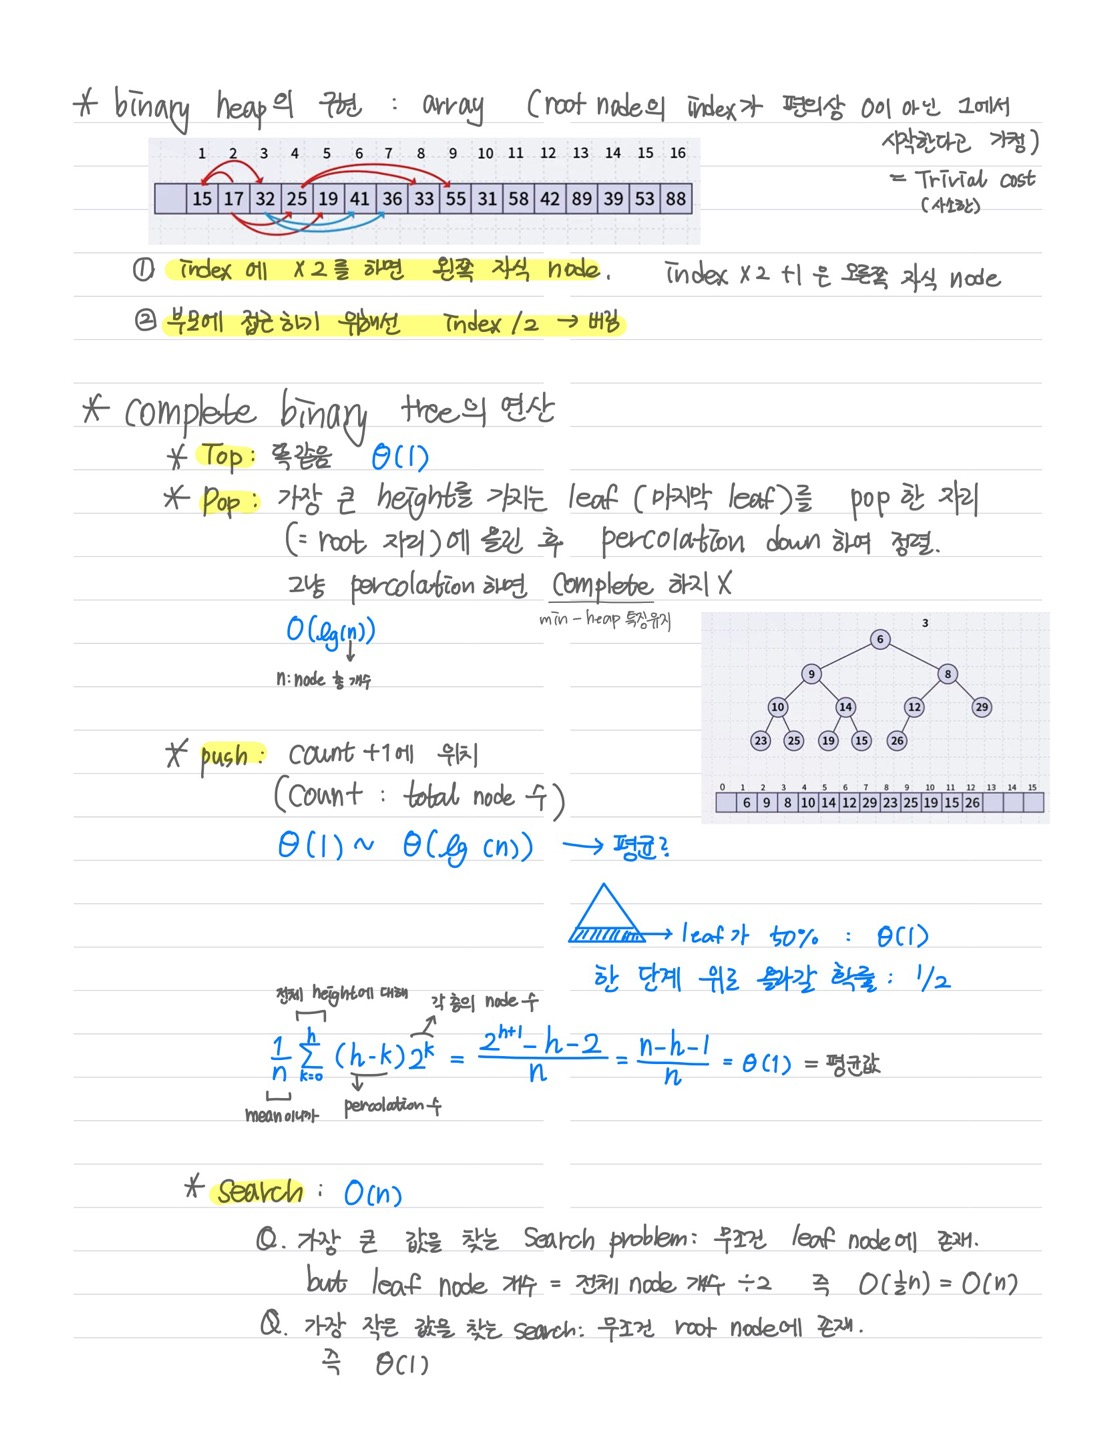 * binary heap의 구현 : array (root node의 index가 편의상 0이 아닌 1에서
시작한다고 가정)
= Trivial cost
(사소한)
1 2 3 4 5 6 7 8 9 10 11 12 13 14 15 16
15 17 32 25 19 41 36 33 55 31 58 42 89 39 53 88
① index에 ×2를 하면 왼쪽 자식 node. index×2+1은 오른쪽 자식 node
② 부모에 접근하기 위해선 index/2 → 버림
* complete binary tree의 연산
* Top : 똑같음 θ(1)
* Pop : 가장 큰 height를 가지는 leaf (마지막 leaf)를 pop한 자리
(= root 자리)에 올린 후 percolation down하여 정렬.
그냥 percolation하면 complete 하지 X
min-heap 특징유지
O(lg(n))
n: node 총 개수
3
6
9 8
10 14 12 29
23 25 19 15 26
0 1 2 3 4 5 6 7 8 9 10 11 12 13 14 15
6 9 8 10 14 12 29 23 25 19 15 26
* push : count+1에 위치
(count : total node 수)
θ(1) ~ θ(lg(n)) → 평균?
→ leaf가 50% : θ(1)
한 단계 위로 올라갈 확률 : 1/2
전체 height에 대해 각 층의 node 수
1/n ∑ₖ₌₀ʰ (h-k)2ᵏ = (2ʰ⁺¹-h-2)/n = (n-h-1)/n = θ(1) = 평균값
mean이니까 percolation 수
* Search : O(n)
Q. 가장 큰 값을 찾는 Search problem: 무조건 leaf node에 존재.
but leaf node 개수 = 전체 node 개수 ÷2 즉 O(½n) = O(n)
Q. 가장 작은 값을 찾는 search: 무조건 root node에 존재.
즉 θ(1)